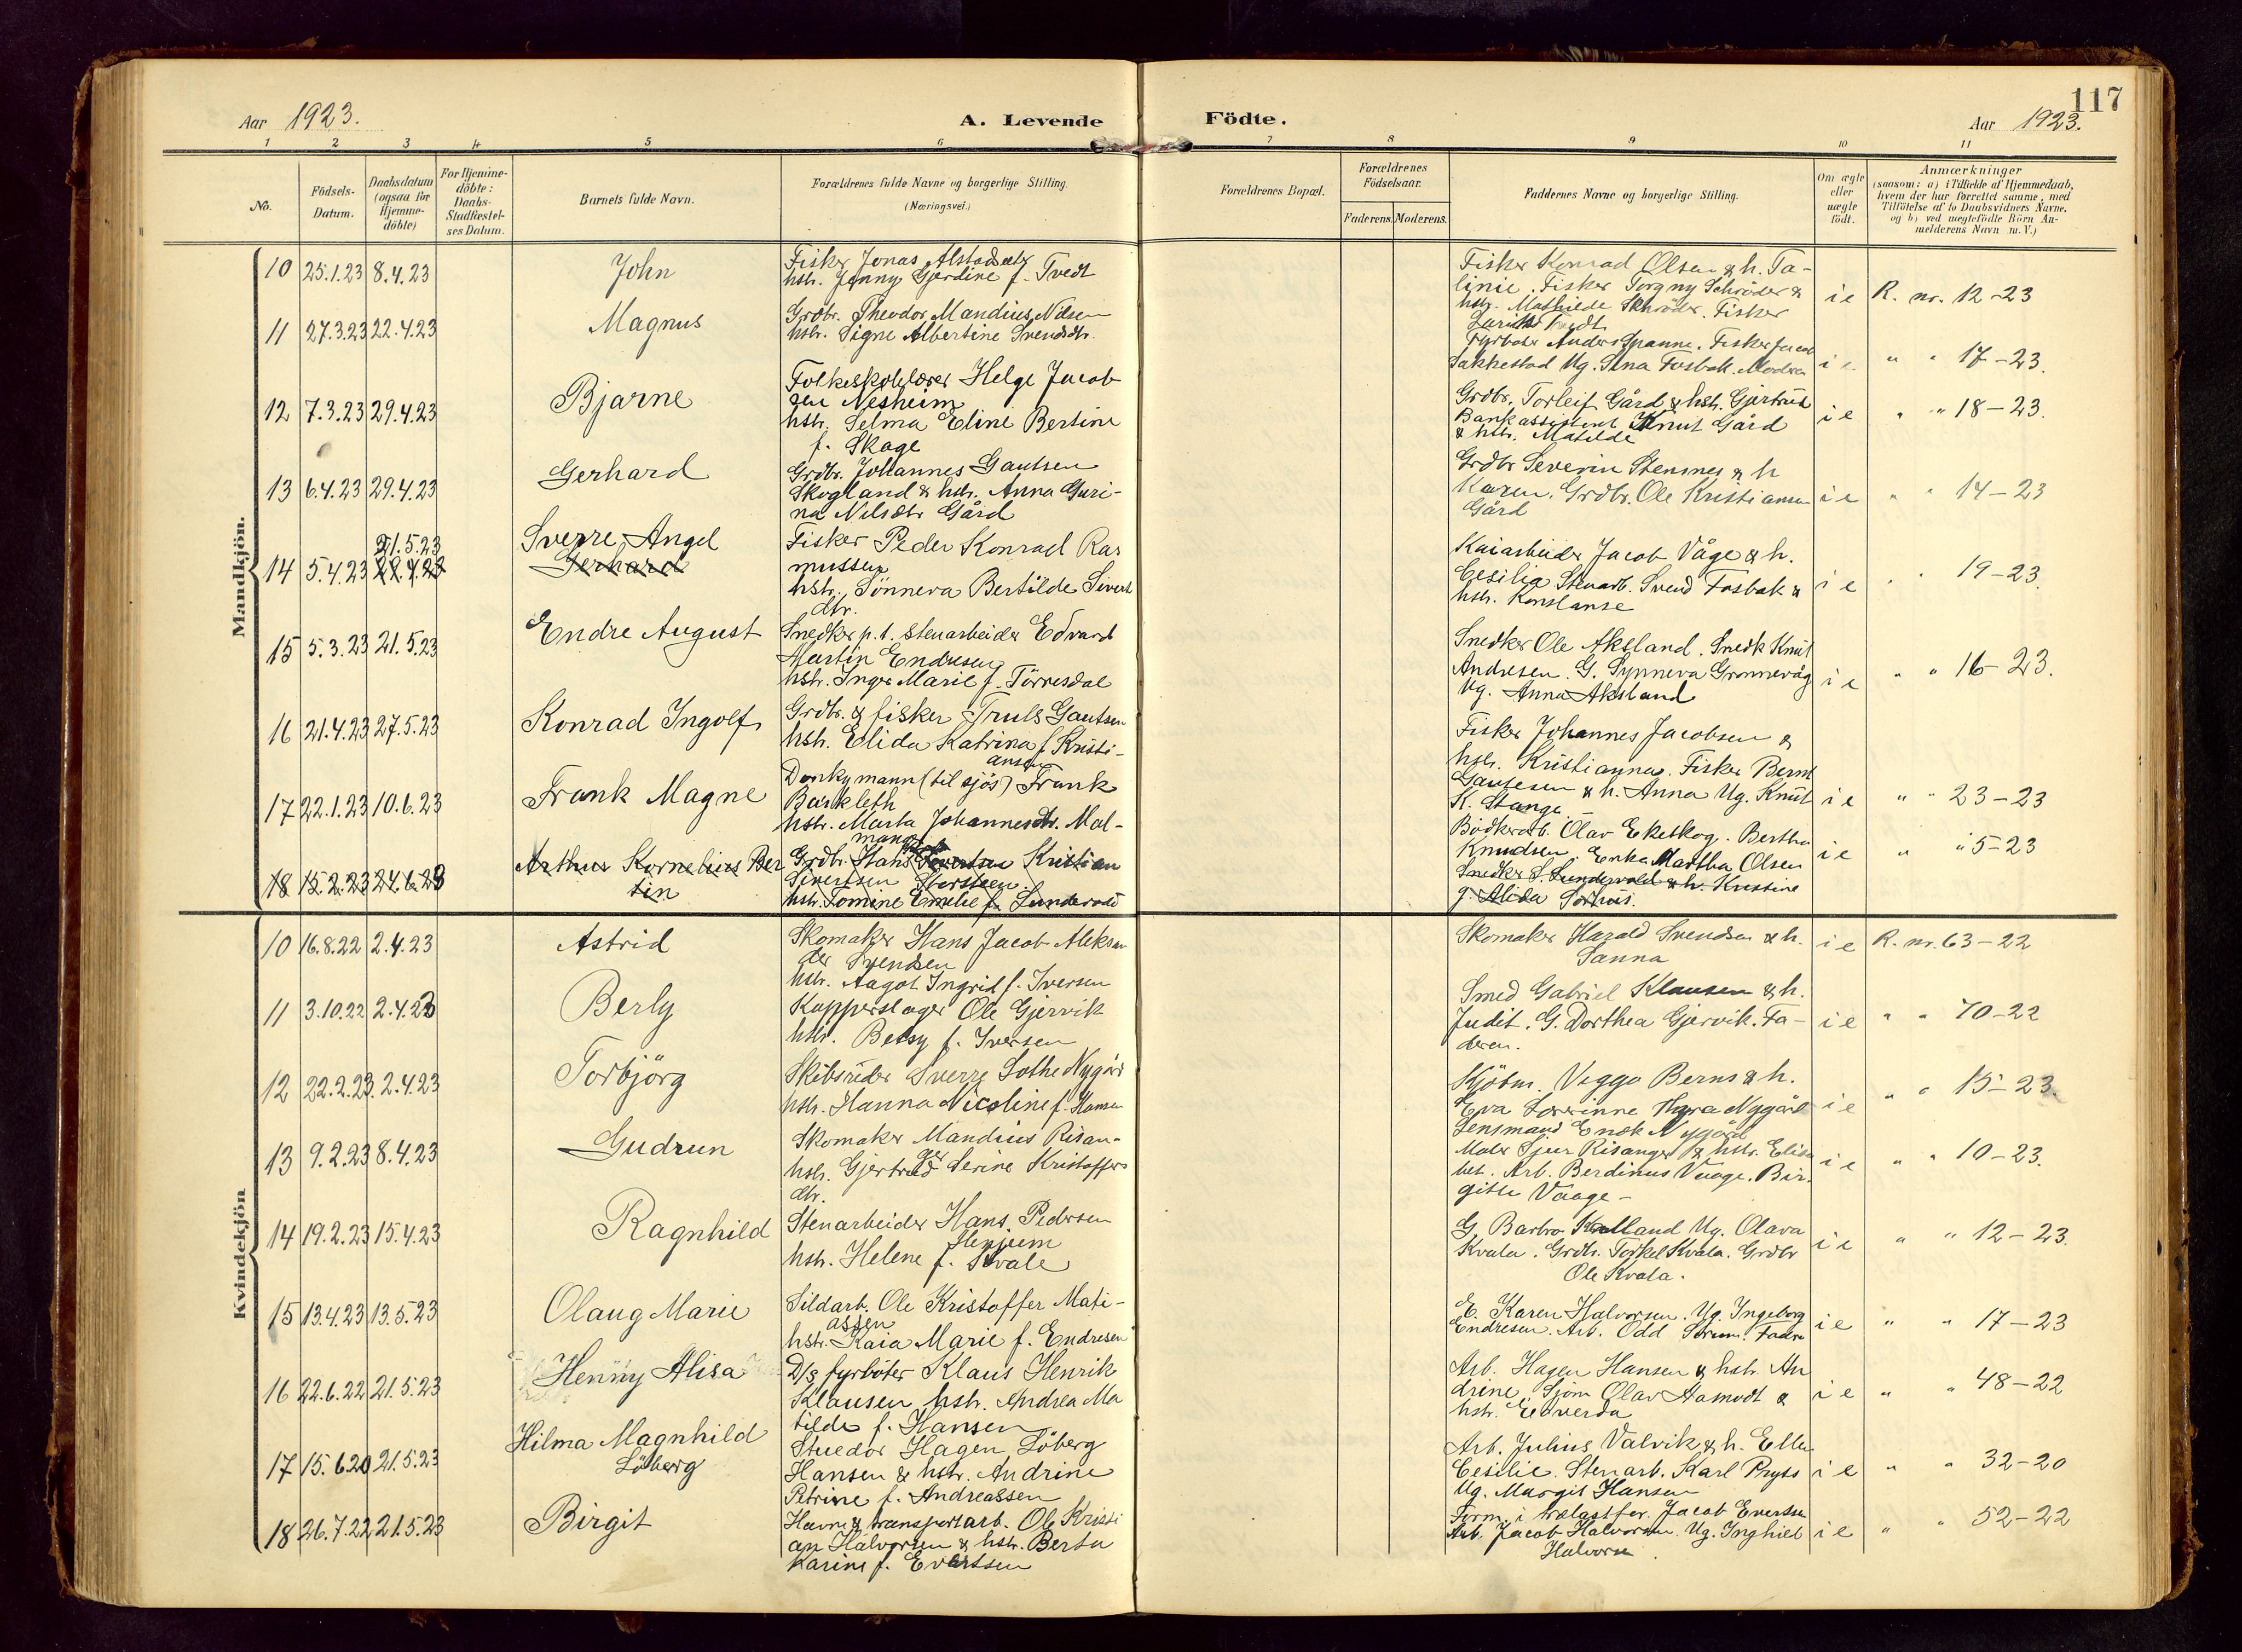 117
Aar 1923.
A. Levende Födte.
Aar 1923.
1 2 3 4 5 6 7 8 9 10 11
No.
Födsels-Datum.
Daabsdatum (ogsaa for Hjemme-döbte)
For Hjemme-döbte: Daabs-Stadfæstel-ses Datum.
Barnets fulde Navn.
Forældrenes fulde Navne og borgerlige Stilling. (Næringsvei.)
Forældrenes Bopæl.
Forældrenes Födselsaar.
Faderens. Moderens.
Faddernes Navne og borgerlige Stilling.
Om ægte eller uægte födt.
Anmærkninger
(saasom: a) i Tilfælde af Hjemmedaab, hvem der har forrettet samme, med Tilföielse af to Daabsvidners Navne, og b) ved uægtefödte Börn An-melderens Navn m. V.)
Mandkjön.
10 25.1.23 8.4.23 John
Fisker Jonas Alstadsæter
hstr. Jenny Gjerdine f. Tvedt
Fisker Konrad Olsen & h. Ta-
linie. Fisker Torgny Schröder &
hstr. Mathilde Schröder. Fisker
Tvedt
ie R. nr. 12-23
11 27.3.23 22.4.23 Magnus
Grdbr. Theodor Mandius Nilsen
hstr. Signe Albertine Svendsdtr.
Fyrböter Anders Spanne. Fisker Jacob
Sakkestad Ug. Sina Fosbak. Modren
ie " " 17-23.
12 7.3.23 29.4.23 Bjarne
Folkeskolelærer Helge Jacob
sen Nesheim
hstr. Selma Eline Bertine
f. Skage
Grdbr. Torleif Gård & hstr. Gjertrud
Bankassistent Knut Gård
& hstr. Matilde
ie " " 18-23.
13 6.4.23 29.4.23 Gerhard
Grdbr. Johannes Gautsen
Skogland & hstr. Anna Guri-
na Nilsdtr Gård
Grdbr Severin Stensnes & h
Karen. Grdbr. Ole Kristiansen
Gård
ie " " 14-23
14 5.4.23 21.5.23 22.4.23 Sverre Angel
Gerhard
Fisker Peder Konrad Ras
mussen
hstr. Sönneva Bertilde Sivert
dtr.
Kaiarbeider Jacob Våge & h.
Cesilia Stenarb. Svend Fosbak &
hstr. Konstanse
ie " " 19-23.
15 5.3.23 21.5.23 Endre August
Snedker p.t. stenarbeider Edvard
Martin Endresen
hstr. Inger Marie f. Törresdal
Snedker Ole Aksland. Snedk Knut
Andresen. G. Synneva Grønnevåg
Ug. Anna Aksland
ie " " 16-23.
16 21.4.23 27.5.23 Konrad Ingolf
Grdbr. & fisker Truls Gautsen
hstr. Elida Katrina f. Kristi-
ansen
Fisker Johannes Jacobsen &
hstr. Kristianna. Fisker Bernt
Gautesen & h. Anna Ug. Knut
K. Stange.
ie " " 23-23
17 22.1.23 10.6.23 Frank Magne
Donkymann (til sjös) Frank
Barkleth
hstr. Marta Johannesdtr. Mal-
mang
Bödkerarb. Olav Ekeskog. Bertha
Knudsen. Enke Martha Olsen
ie " " 5-23
18 15.2.23 24.6.23 Arthur Kornelius Ber
tin
Grdbr. Hans Kristian
Sivertsen Storsteen
hstr. Tomine Emelie f. Sundervold
Snedker S. Sundervold & h. Kristine
g. Alida Sörhus.
Kvindekjön
10 16.8.22 2.4.23 Astrid
Skomaker Hans Jacob Aleksan
der Svendsen
hstr. Aagot Ingrid f. Iversen
Skomaker Harald Svendsen & h.
Sanna
ie R. nr. 63-22
11 3.10.22 2.4.23 Berly
Kopperslager Ole Gjervik
hstr. Betsy f. Iversen
Smed Gabriel Klausen & h.
Judit. G. Dorthea Gjervik. Fa-
deren.
ie " " 70-22
12 22.2.23. 2.4.23 Torbjörg
Skibsreder Sverre Lothe Nygård
hstr. Hanna Nicoline f. Hansen
Kjöbm. Viggo Berns & h.
Eva Lovinne Thora Nygård
Lensmand Enok Nygård
ie " " 15-23.
13 9.2.23 8.4.23 Gudrun
Skomaker Mandius Risan-
ger
hstr. Gjertrud Serine Kristoffers
dtr.
Maler Sjur Risanger & hstr. Elisa
bet. Arb. Berdinus Vaage. Bir-
gitte Vaage -
ie " " 10-23.
14 19.2.23 15.4.23 Ragnhild
Stenarbeider Hans Pedersen
Henjum
hstr. Helene f. Kvale
G. Barbro Kalland Ug. Olava
Kvala. Grdbr. Torkel Kvala. Grdbr
Ole Kvala.
ie " " 12-23.
15 13.4.23 13.5.23 Olaug Marie
Sildarb. Ole Kristoffer Mati-
assen
hstr. Kaia Marie f. Endresen
E. Karen Halvorsen. Ug. Ingeborg
Endresen. Arb. Odd Sörum. Fadren
ie " " 17-23
16 22.6.22 21.5.23 Henny Alisa
D/s fyrböter Klaus Henrik
Klausen hstr. Andrea Ma
tilde f. Hansen
Arb. Hagen Hansen & hstr. An
drine. Sjöm Olav Aamodt &
hstr. Edverda
ie " " 48-22
17 15.6.20 21.5.23 Hilma Magnhild
Löberg
Stuedor Hagen Löberg
Hansen & hstr. Andrine
Petrine f. Andreassen
Arb. Julius Valvik & h. Ellen
Cesilie. Stenarb. Karl Pryts
Ug. Margit Hansen
ie " " 32-20
18 26.7.22 21.5.23 Birgit
Havne & transportarb. Ole Kristi
an Halvorsen & hstr. Berta
Karine f. Evertsen
Form. i trælastfor. Jacob Evertsen
Arb. Jacob Halvorsen. Ug. Inghild
Halvorsen.
ie " " 52-22